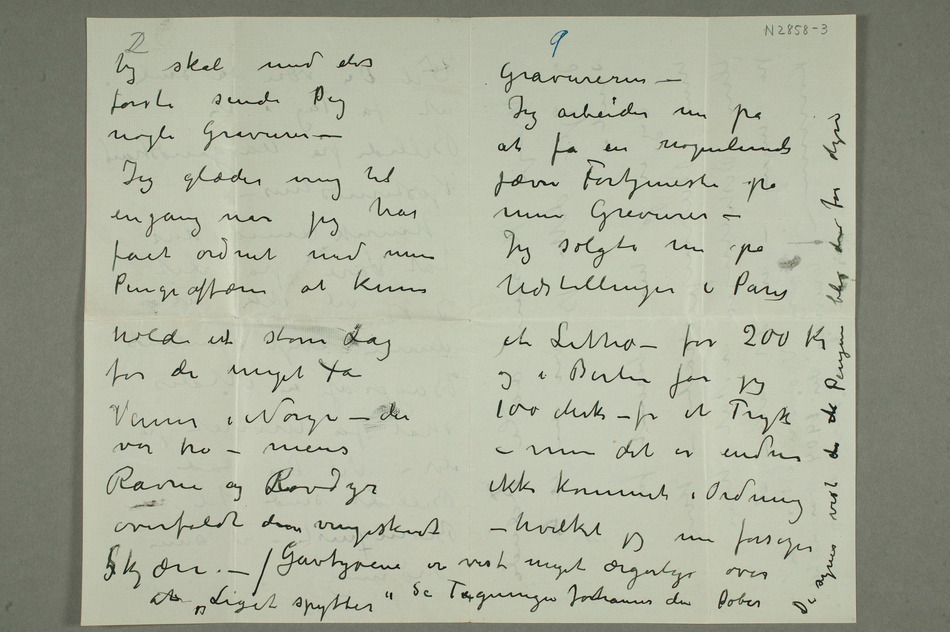 N2858-3
2
Jeg skal med det
første sende Dig
nogle Gravurer—
Jeg glæder mig til
engang når jeg har
fået ordnet med mine
Pengeaffærer at kunne
holde et stort Lag
for de meget få
Venner i Norge — der
var tro — mens
Ravne og Rovdyr
overfaldt den vingeskudt
Skjære. — / Gavtyvene er vist meget ærgerlige over
at „Liget spytter" Se Tegningen Johannes den Døber
9
Gravurerne —
Jeg arbeider nu på
at få en nogenlunde
jævn Fortjeneste på
mine Gravurer —
Jeg solgte nu på
Udstillingen i Paris
et Litho — for 200 Kr
og i Berlin får jeg
100 Mk — for et Tryk
— men det er endnu
ikke kommet i Ordning
— hvilket jeg nu forsøger
De synes vist at Pengene blir for dyre